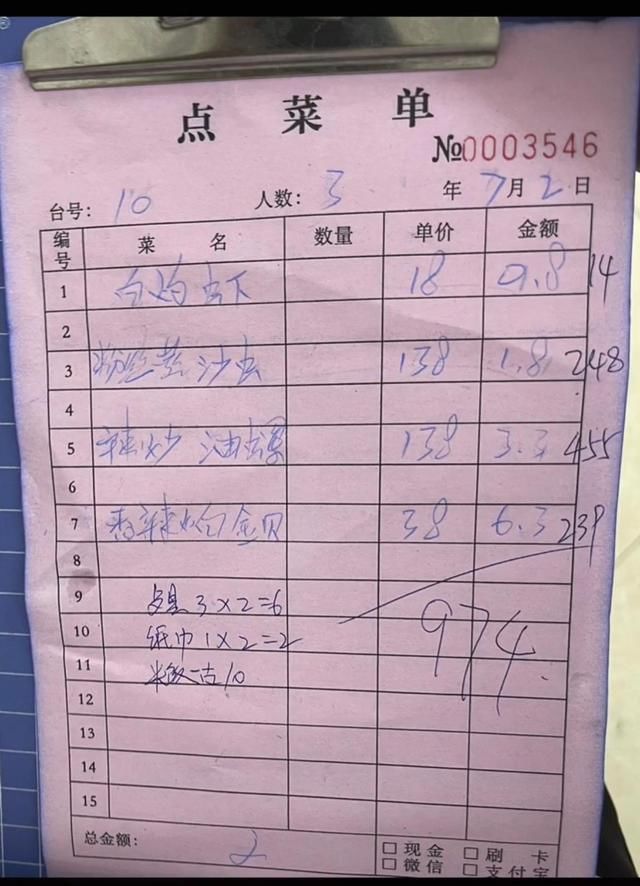 点菜单
№0003546
台号: 10 人数: 3 年 7月2日
编号 菜名 数量 单价 金额
1 白灼虫下 18 0.8 14
2
3 粉丝蒸沙虫 138 1.8 248
4
5 辣炒油螺 138 3.3 455
6
7 香辣炒白金贝 38 6.3 239
8
9 3×2=6
10 纸巾1×2=2
11 米饭一古10
974
12
13
14
15
总金额: 2 □现金 □刷卡
□微信 □支付宝